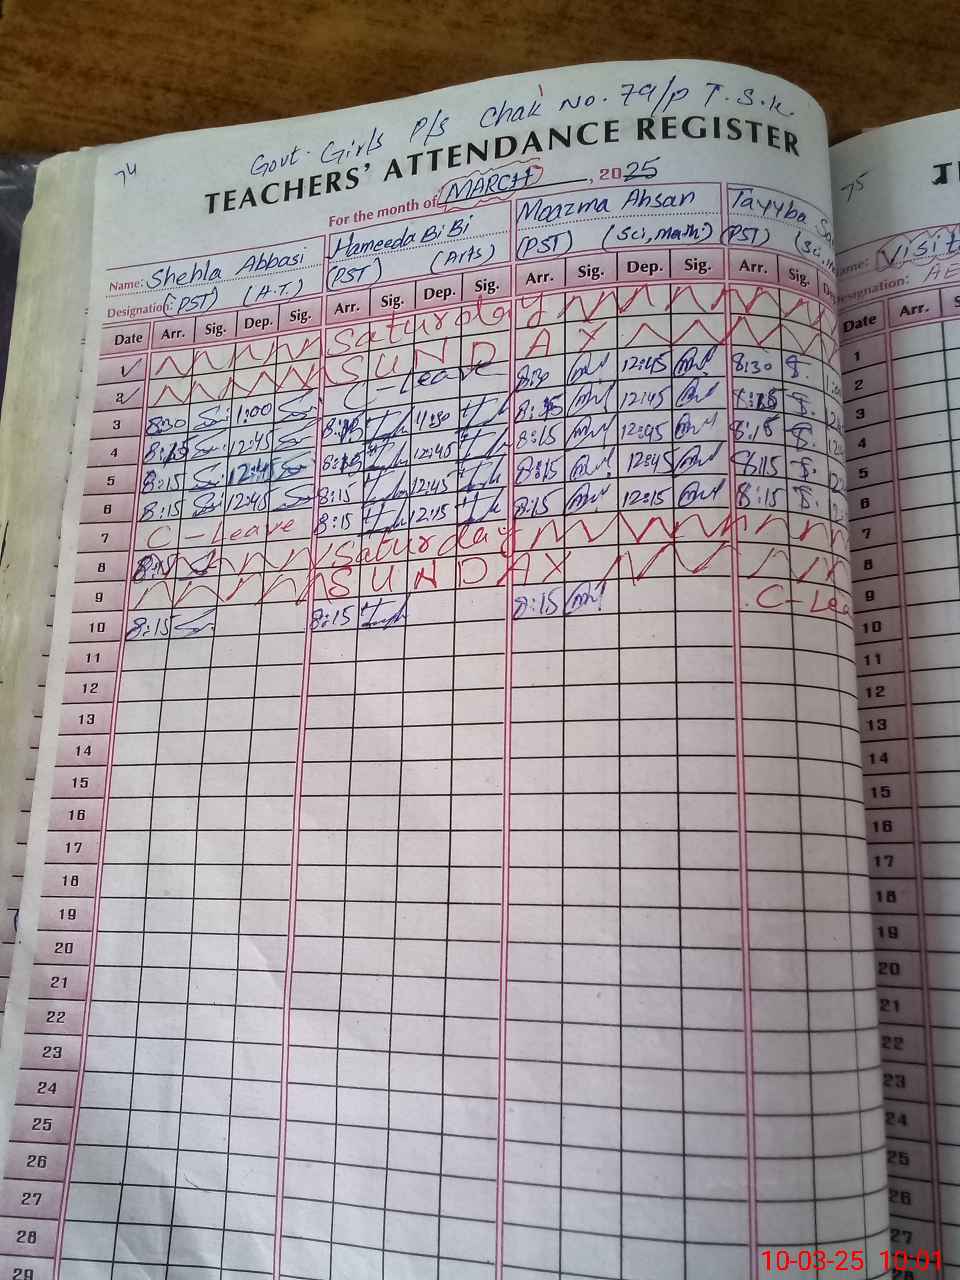 74
Govt. Girls P/S Chak No. 79/P T.S.K.
TEACHERS' ATTENDANCE REGISTER
For the month of MARCH, 2025
Name: Shehla Abbasi Hameeda BiBi Moazma Ahsan Tayyba
Designation: (PST) (H.T.) (PST) (Arts) (PST) (Sci, math) (PST)
Date Arr. Sig. Dep. Sig. Arr. Sig. Dep. Sig. Arr. Sig. Dep. Sig. Arr. Sig.
1 Saturday
2 SUNDAY
3 8:30 1:00 C-Leave 8:30 12:45 8:30
4 8:15 12:45 8:15 11:30 8:15 12:45 8:15
5 8:15 12:45 8:15 12:45 8:15 12:45 8:15
6 8:15 12:45 8:15 12:45 8:15 12:45 8:15
7 C-Leave 8:15 12:15 8:15 12:15 8:15
8 Saturday
9 SUNDAY
10 8:15 8:15 8:15 C-Lea
11
12
13
14
15
16
17
18
19
20
21
22
23
24
25
26
27
28
29
75
Name: Visit
Designation: AE
Date Arr.
1
2
3
4
5
6
7
8
9
10
11
12
13
14
15
16
17
18
19
20
21
22
23
24
25
26
27
28
10-03-25 10:01